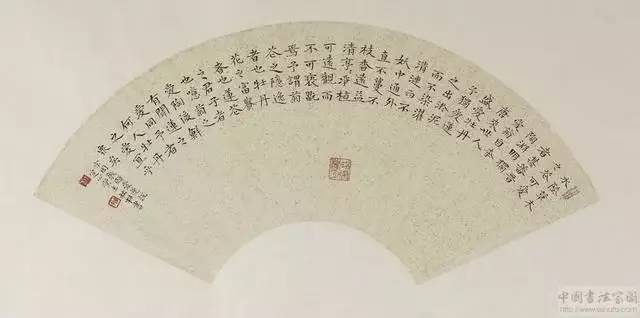 水陸草木
之花可愛
者甚蕃晉
陶淵明獨
愛菊自李
唐來世人
盛愛牡丹
予獨愛蓮
之出淤泥
而不染濯
清漣而不
妖中通外
直不蔓不
枝香遠益
清亭亭淨植
可遠觀而
不可褻翫
焉予謂菊
花之隱逸
者也牡丹
花之富貴
者也蓮花
之君子者
也噫菊之
愛陶後鮮
有聞蓮之
愛同予者
何人牡丹
之愛宜乎
衆矣
中國書法家園